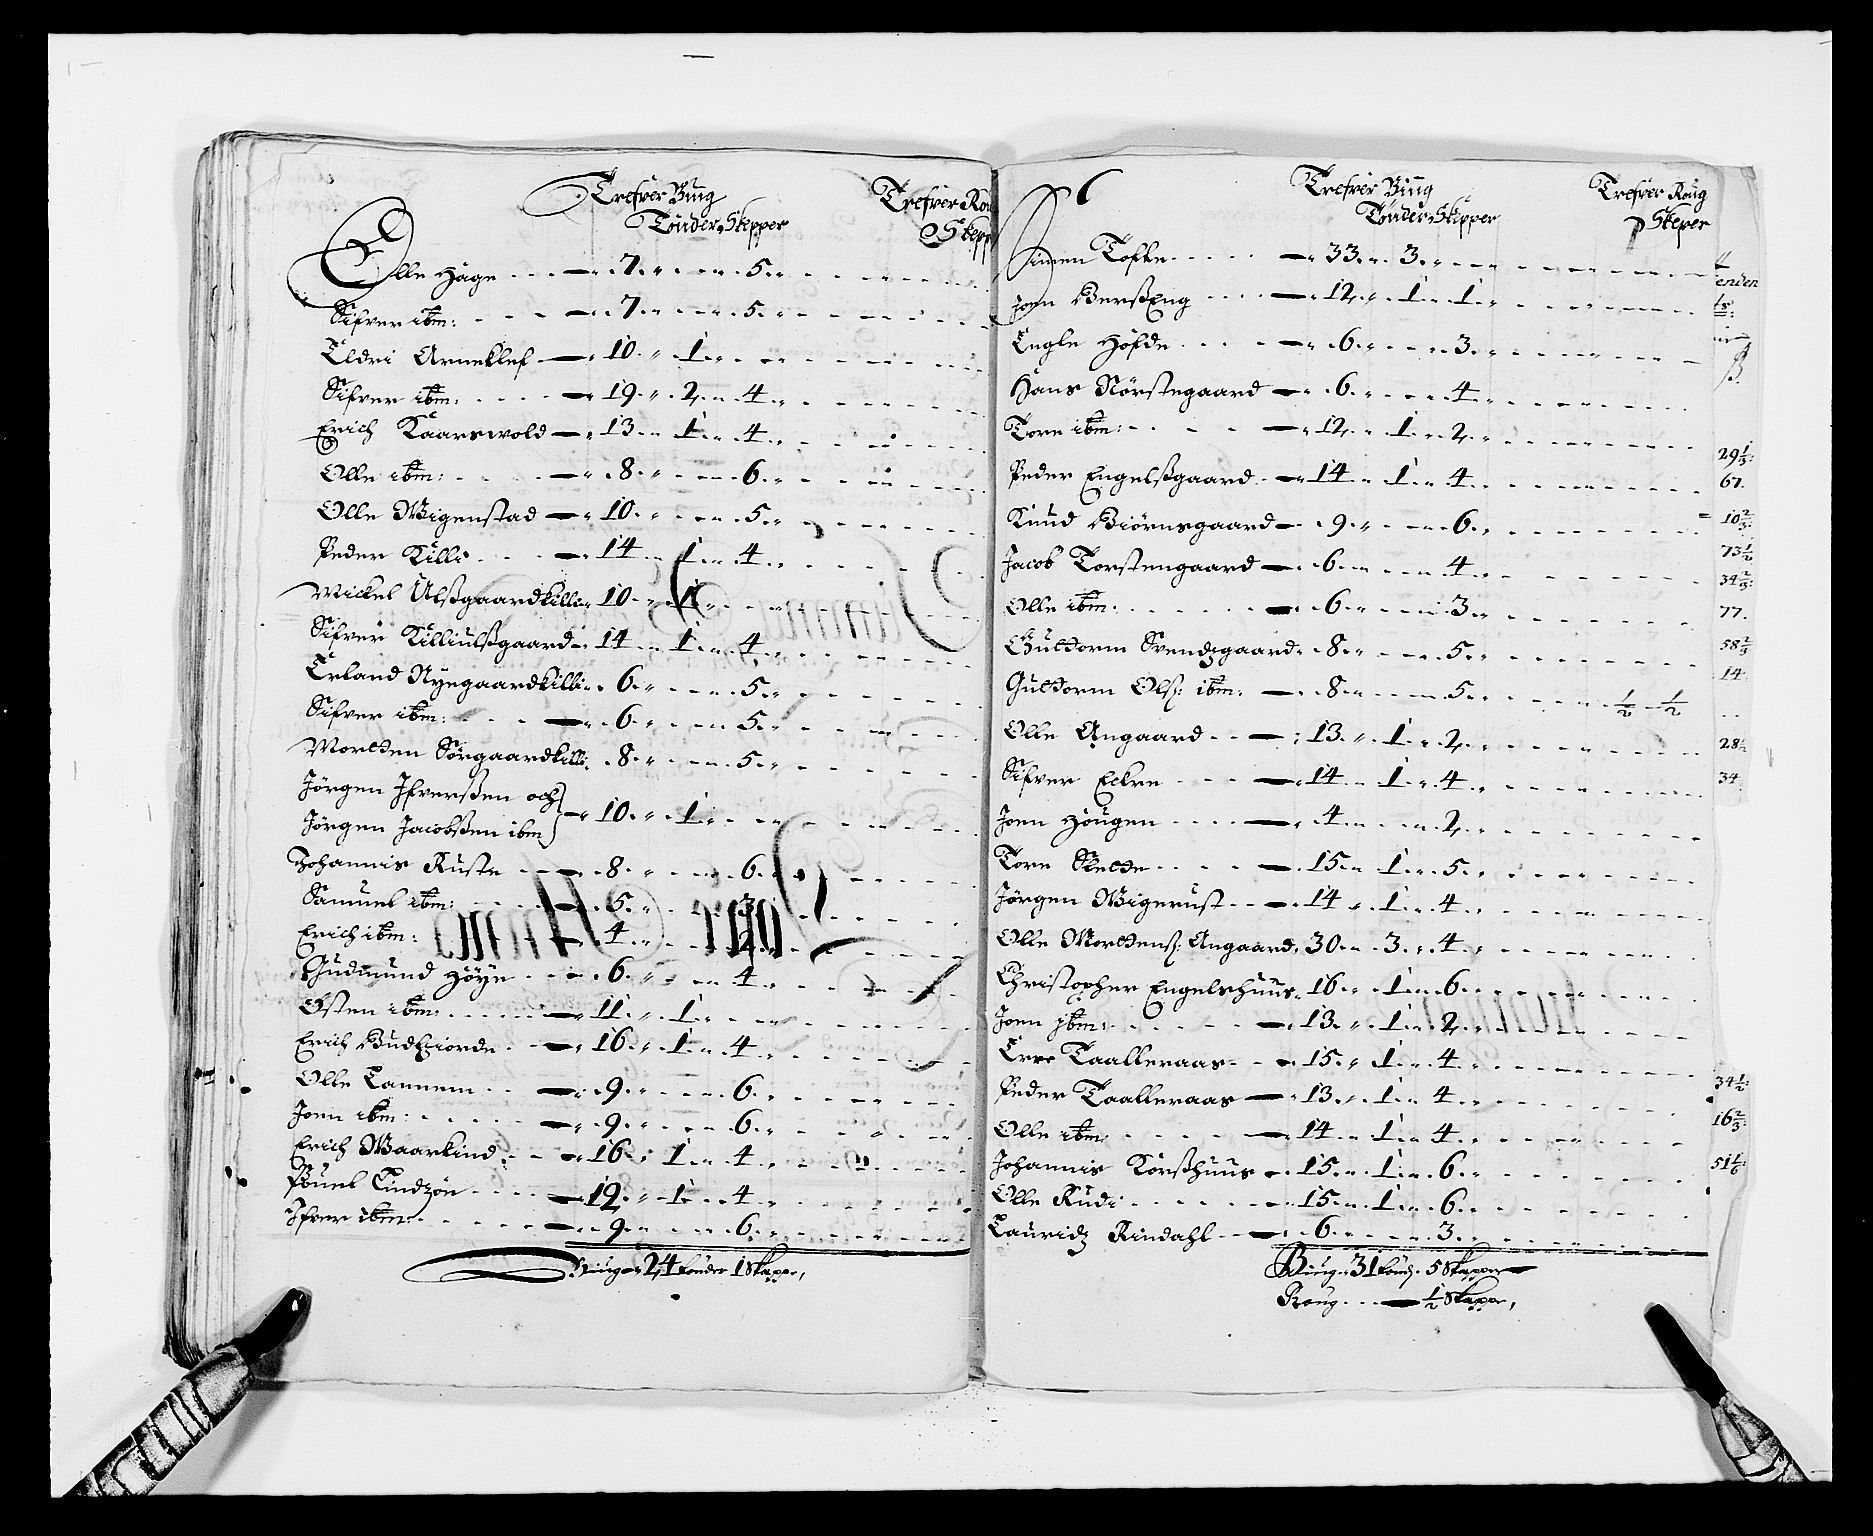 Trefver Biug
Tönder Skepper
Trefver Ro
Skepp
Olle Hage 7 5
Sifver ibm: 7 5
Eldri Arneklef 10 1
Sifver ibm: 19 2 4
Erich Kaarswold 13 1 4
Olle ibm: 8 6
Olle Wigenstad 10 5
Peder Killi 14 1 4
Mickel Ulsgaardkilli 10 1
Sifver Killiulsgaard 14 1 4
Erland Nyegaardkilli 6 5
Sifver ibm: 6 5
Morten Sörgaardkilli 8 5
Jörgen Ifverßen och
Jörgen Jacobßen ibm 10 1
Johannis Ruste 8 6
Samuel ibm: 5 3
Erich ibm: 4 2
Gudmund Höye 6 4
Östen ibm: 11 1
Erich Budtziorde 16 1 4
Olle Lannem 9 6
Joen ibm: 9 6
Erich Waarkind 16 1 4
Pouel Lindzöe 12 1 4
Ifver ibm: 9 6
Biug 24 tönder 1 Skepper,
6
Trefver Biug
Tönder Skepper
Trefver Roug
Skeper
Simen Tofte 33 3
Joen Berßeng 12 1 1
Engle Hofde 6 3
Hans Nörstegaard 6 4
Tore ibm: 12 1 2
Peder Engelßgaard 14 1 4
Knud Biörnsgaard 9 6
Jacob Torstengaard 6 4
Olle ibm: 6 3
Guttorm Svendzgaard 8 5
Guttorm Olß: ibm: 8 5 1/2 1/2
Olle Angaard 13 1 2
Sifver Eckre 14 1 4
Joen Hougen 4 2
Tore Skette 15 1 5
Jörgen Wigerust 14 1 4
Olle Mortenß: Angaard 30 3 4
Christopher Engelshuus 16 1 6
Joen jbm: 13 1 2
Taalleraas 15 1 4
Peder Taalleraas 13 1 4
Olle ibm: 14 1 4
Johannis Korßhuus 15 1 6
Olle Rudi 15 1 6
Lauridz Rindahl 6 3
Biug 31 tönd. 5 Skepper
Roug 1/2 Skeper,
enden
29 1/3:
67.
10 2/3:
73 1/2
34 2/3:
77.
58 2/3
14
28
34
34 1/2:
16 2/3:
51 1/6: